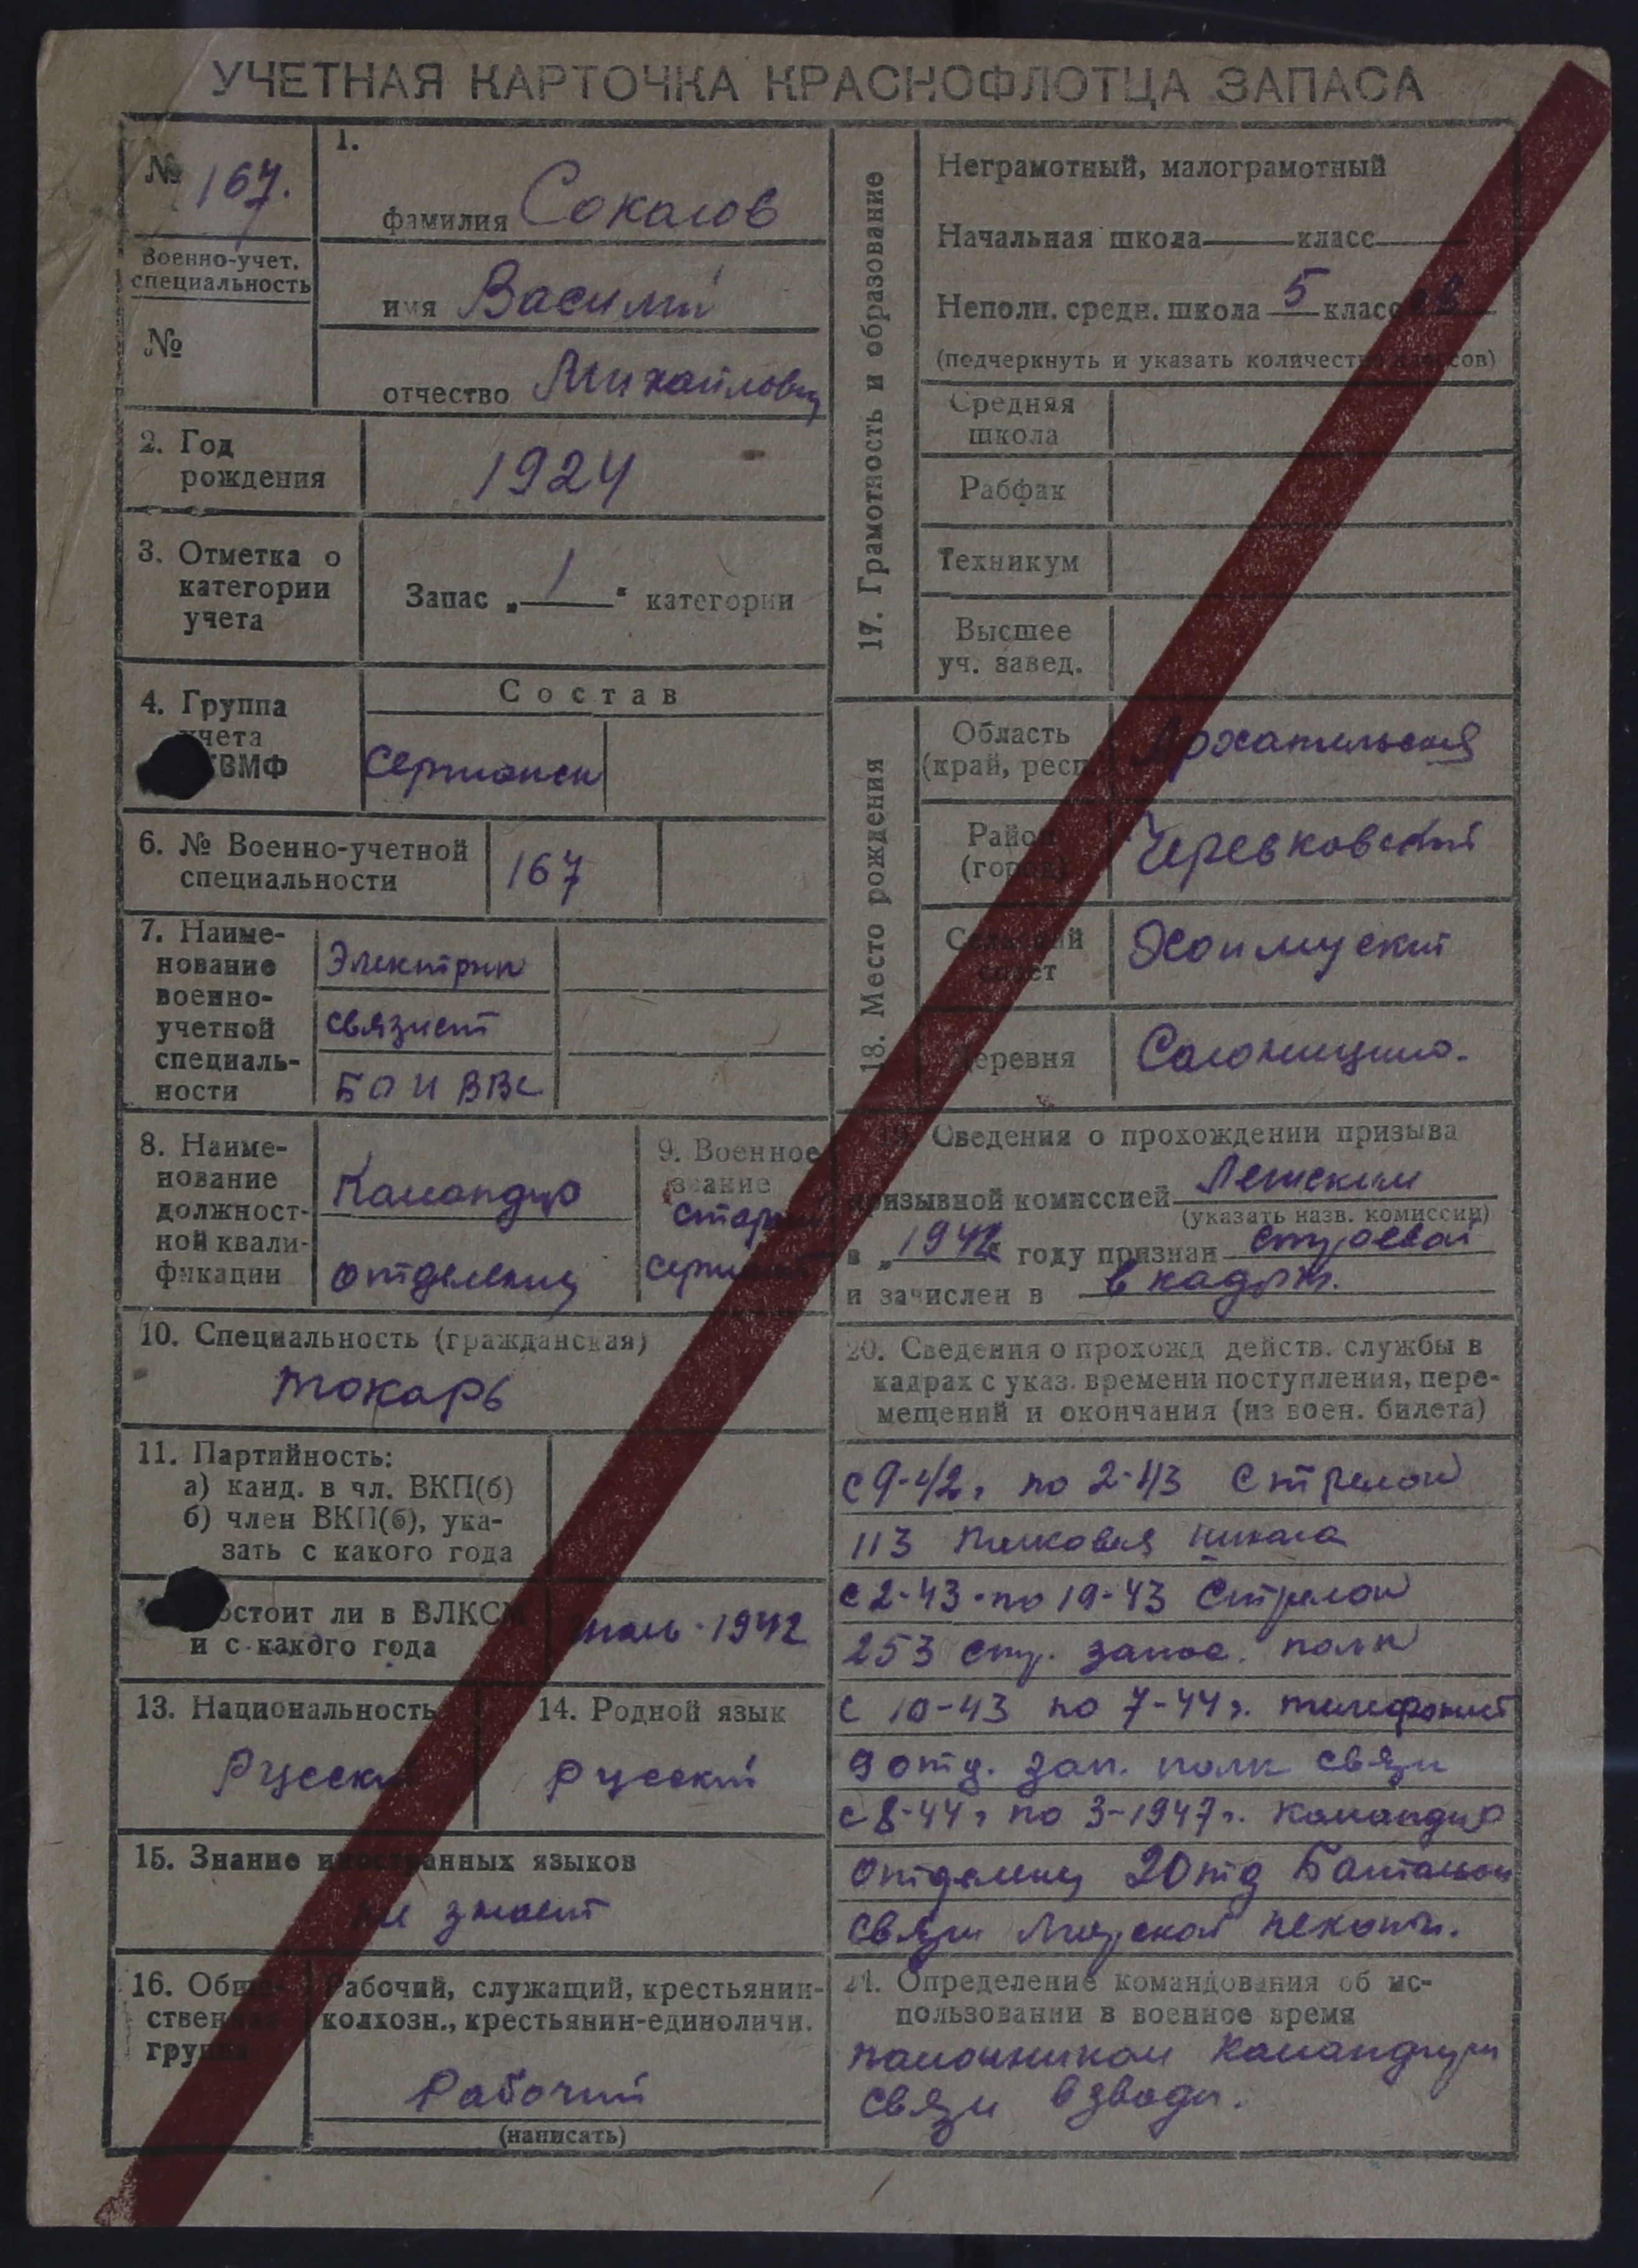 УЧЕТНАЯ КАРТОЧКА КРАСНОФЛОТЦА ЗАПАСА
№ 167.
Военно-учет.
специальность
№
1.
фамилия Соколов
имя Василий
отчество Михайлович
2. Год
рождения
1924
3. Отметка о
категории
учета
Запас „ 1 “ категории
4. Группа
учета
ВМФ
Состав
Сержанск
6. № Военно-учетной
специальности
167
7. Наиме-
нование
военно-
учетной
специаль-
ности
Электрик
связист
БО и ВВС
8. Наиме-
нование
должност-
ной квали-
фикации
Командир
отделения
9. Военное
звание
Старший
сержант
10. Специальность (гражданская)
токарь
11. Партийность:
а) канд. в чл. ВКП(б)
б) член ВКП(б), ука-
зать с какого года
состоит ли в ВЛКСМ
и с какого года
июль-1942
13. Национальность
Русский
14. Родной язык
русский
15. Знание иностранных языков
не знает
16. Обще-
ственная
группа
Рабочий, служащий, крестьянин-
колхозн., крестьянин-единоличн.
Рабочий
(написать)
17. Грамотность и образование
Неграмотный, малограмотный
Начальная школа класс
Неполн. средн. школа 5 классов
(подчеркнуть и указать количество классов)
Средняя
школа
Рабфак
Техникум
Высшее
уч. завед.
18. Место рождения
Область
(край, респ.
Архангельская
Район
(город)
Черевковский
Сельский
совет
Деревня
19. Сведения о прохождении призыва
призывной комиссией Ленским
(указать назв. комиссии)
в „ 1942 году признан строевой
и зачислен в в кадры.
20. Сведения о прохожд действ. службы в
кадрах с указ. времени поступления, пере-
мещений и окончания (из воен. билета)
с 9-42г по 2-43 Стрелок
113 полковая школа
с 2-43-по 10-43 Стрелок
253 стр. запас. полк
с 10-43 по 7-44г. телефонист
9 отд. зап. полк связи
с 8-44г по 3-1947г. командир
отделения 2 отд Батальон
связи Морской пехоты.
21. Определение командования об ис-
пользовании в военное время
помощником командира
связи взвода.